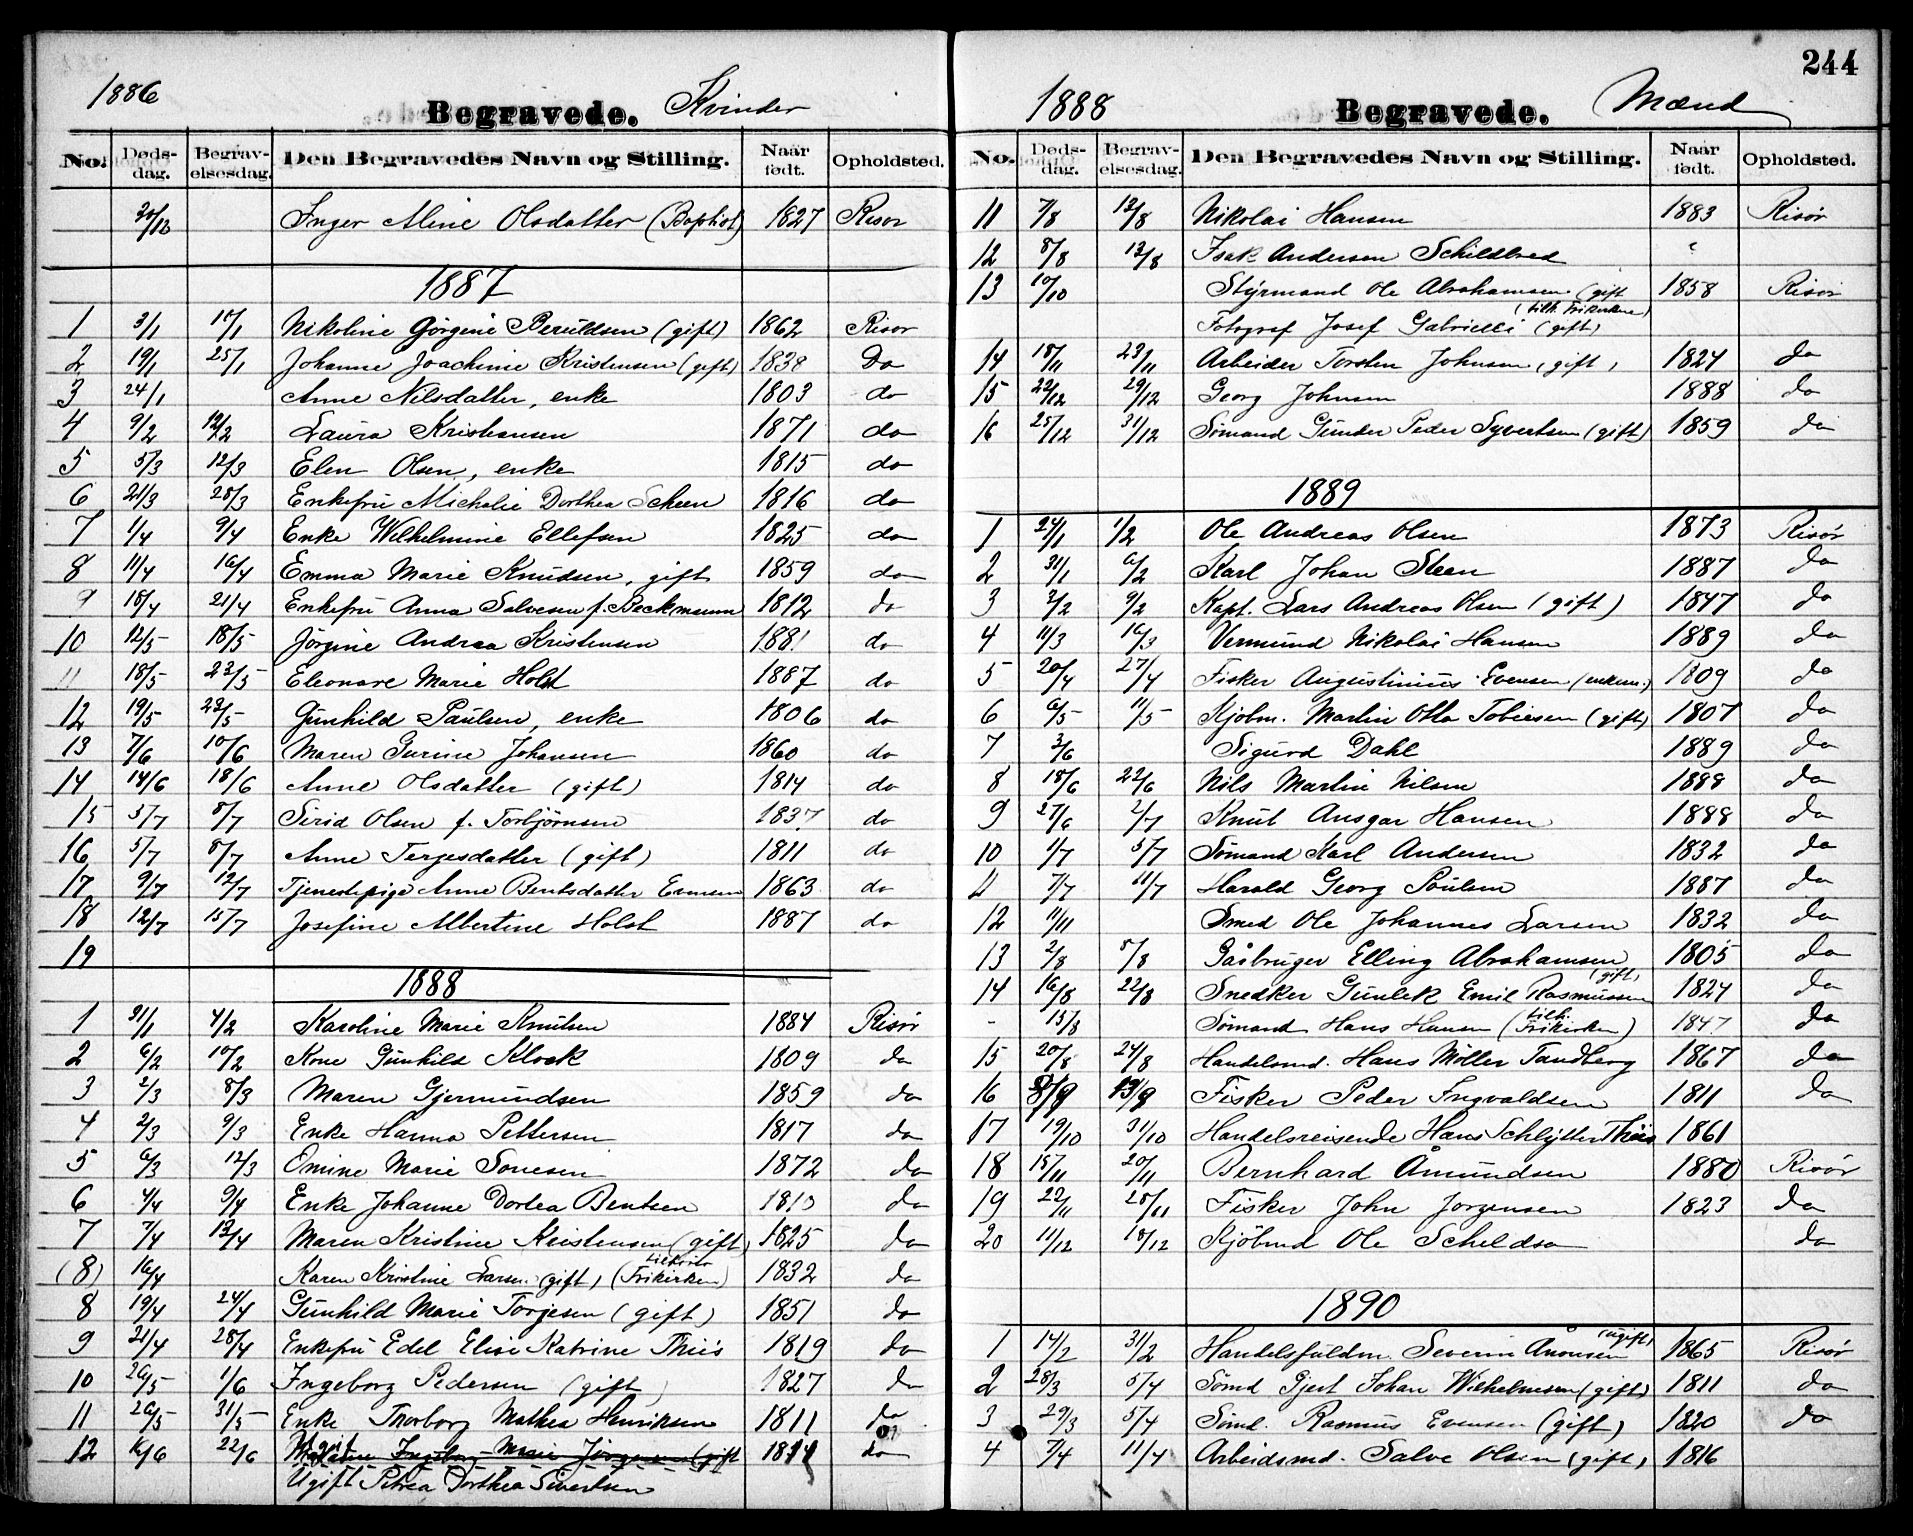 244
1886 Begravede. Kvinder
No. Døds-dag. Begrav-elsesdag. Den Begravedes Navn og Stilling. Naar født. Opholdsted.
30/12 Inger Aline Olsdatter (Baptist) 1827 Risør
1887
1 3/1 17/1 Nikoline Gørgine (gift) 1862 Risør
2 19/1 25/1 Johanne Joachimie Kristensen (gift) 1838 Do
3 24/1 Anne Nilsdatter, enke 1803 do
4 9/2 12/2 Laura Kristiansen 1871 do
5 5/3 12/3 Elen Olsen, enke 1815 do
6 21/3 28/3 Enkefru Michalie Dorthea Scheen 1816 do
7 1/4 9/4 Enke Wilhelmine Ellefsen 1825 do
8 11/4 16/4 Emma Marie Knudsen, gift 1859 do
9 18/4 21/4 Enkefru Anna Salvesen f. Beckmann 1812 do
10 12/5 18/5 Jørgine Andrea Kristensen 1881 do
11 18/5 23/5 Eleonare Marie Holst 1887 do
12 19/5 23/5 Gunhild Paulsen, enke 1806 do
13 7/6 10/6 Maren Gurine Johansen 1860 do
14 14/6 18/6 Anne Olsdatter (gift) 1814 do
15 5/7 8/7 Sirid Olsen f. Torbjørnsen 1837 do
16 5/7 8/7 Anne Terjesdatter (gift) 1811 do
17 9/7 12/7 Tjenestepige Anne Bentsdatter 1863 do
18 12/7 15/7 Josefine Albertine Holst 1887 do
19
1888
1 31/1 4/2 Karoline Marie Knutsen 1884 Risør
2 6/2 10/2 Kone Gunhild Klock 1809 do
3 2/3 8/3 Maren Gjermundsen 1859 do
4 2/3 9/3 Enke Hanna Pettersen 1817 do
5 6/3 12/3 Omine Marie Sonesen 1872 do
6 4/4 9/4 Enke Johanne Dortea Bentsen do
7 7/4 13/4 Maren Kristine Kristensen (gift) 1825 do
(8) 16/4 Karen Kristine Larsen (gift) (Frikirken) 1832 do
8 19/4 24/4 Gunhild Marie Torjesen (gift) 1851 do
9 21/4 28/4 Enkefru Edel Elise Katrine Thiis 1819 do
10 26/5 1/6 Ingeborg Pedersen (gift) 1827 do
11 26/5 31/5 Enke Thorborg Mathea Henriksen 1811 do
12 16/6 22/6 Ingeborg Marie Jørgensen (gift do
Ugift Petrea Dorthea Sivertsen
1888 Begravede. Mænd
No. Døds-dag. Begrav-elsesdag. Den Begravedes Navn og Stilling. Naar født. Opholdsted.
11 7/8 12/8 Nikolai Hansen 1883 Risør
12 8/8 13/8 Isak Andersen Schildbred
13 10/10 Styrmand Ole Abrahamsen (gift 1858 Risør
(tilh. Frikirken)
Fotograf Josef Gabrielli (gift)
14 18/11 23/11 Arbeider Torsten Johnsen (gift) 1824 do
15 22/12 29/12 Georg Johnsen 1888 do
16 25/12 31/12 Sømand Gunder Peder Syvertsen (gift) 1859 do
1889
1 24/1 1/2 Ole Andreas Olsen 1873 Risør
2 31/1 6/2 Karl Johan Steen 1887 do
3 3/2 9/2 Kapt. Lars Andreas Olsen (gift) 1847 do
4 11/3 16/3 Vermund Nikolai Hansen 1889 do
5 20/4 27/4 Fisker Augustinius Evensen (enkem.) 1809 do
6 6/5 11/5 Kjøbm. Martin Otto Tobiesen (gift) 1807 do
7 3/6 Sigurd Dahl 1889 do
8 18/6 22/6 Nils Martin Nilsen 1888 do
9 27/6 2/7 Knut Ansgar Hansen 1888 do
10 1/7 5/7 Sømand Karl Andersen 1832 do
11 7/7 11/7 Harald Georg Poulsen 1887 do
12 11/11 Smed Ole Johannes Larsen 1832 do
13 2/8 8/8 Gårbruger Elling Abrahamsen 1805 do
(gift)
14 16/8 22/8 Snedker Gunlek Emil Rasmussen 1824 do
- 15/8 Sømand Hans Hansen (tilh. Frikirken) 1847 do
15 20/8 24/8 Handelsmd. Hans Møller Tandberg 1867 do
16 13/9 Fisker Peder Ingvaldsen 1811 do
17 19/10 31/10 Handelsreisende Hans Schlytter Thiis 1861
18 15/11 20/11 Bernhard Åmundsen 1880 Risør
19 22/11 28/11 Fisker John Jorgensen 1823 do
20 11/12 18/12 Kjøbmd Ole Scheldsø do
1890
(ugift)
1 14/2 31/2 Handelsfuldm. Severin 1865 Risør
2 28/3 5/4 Sømd Gjert Johan Wilhelmsen (gift) 1811 do
3 29/3 5/4 Sømd. Rasmus Evensen (gift) 1820 do
4 7/4 11/4 Arbeidsmd. Salve Olsen (gift) 1816